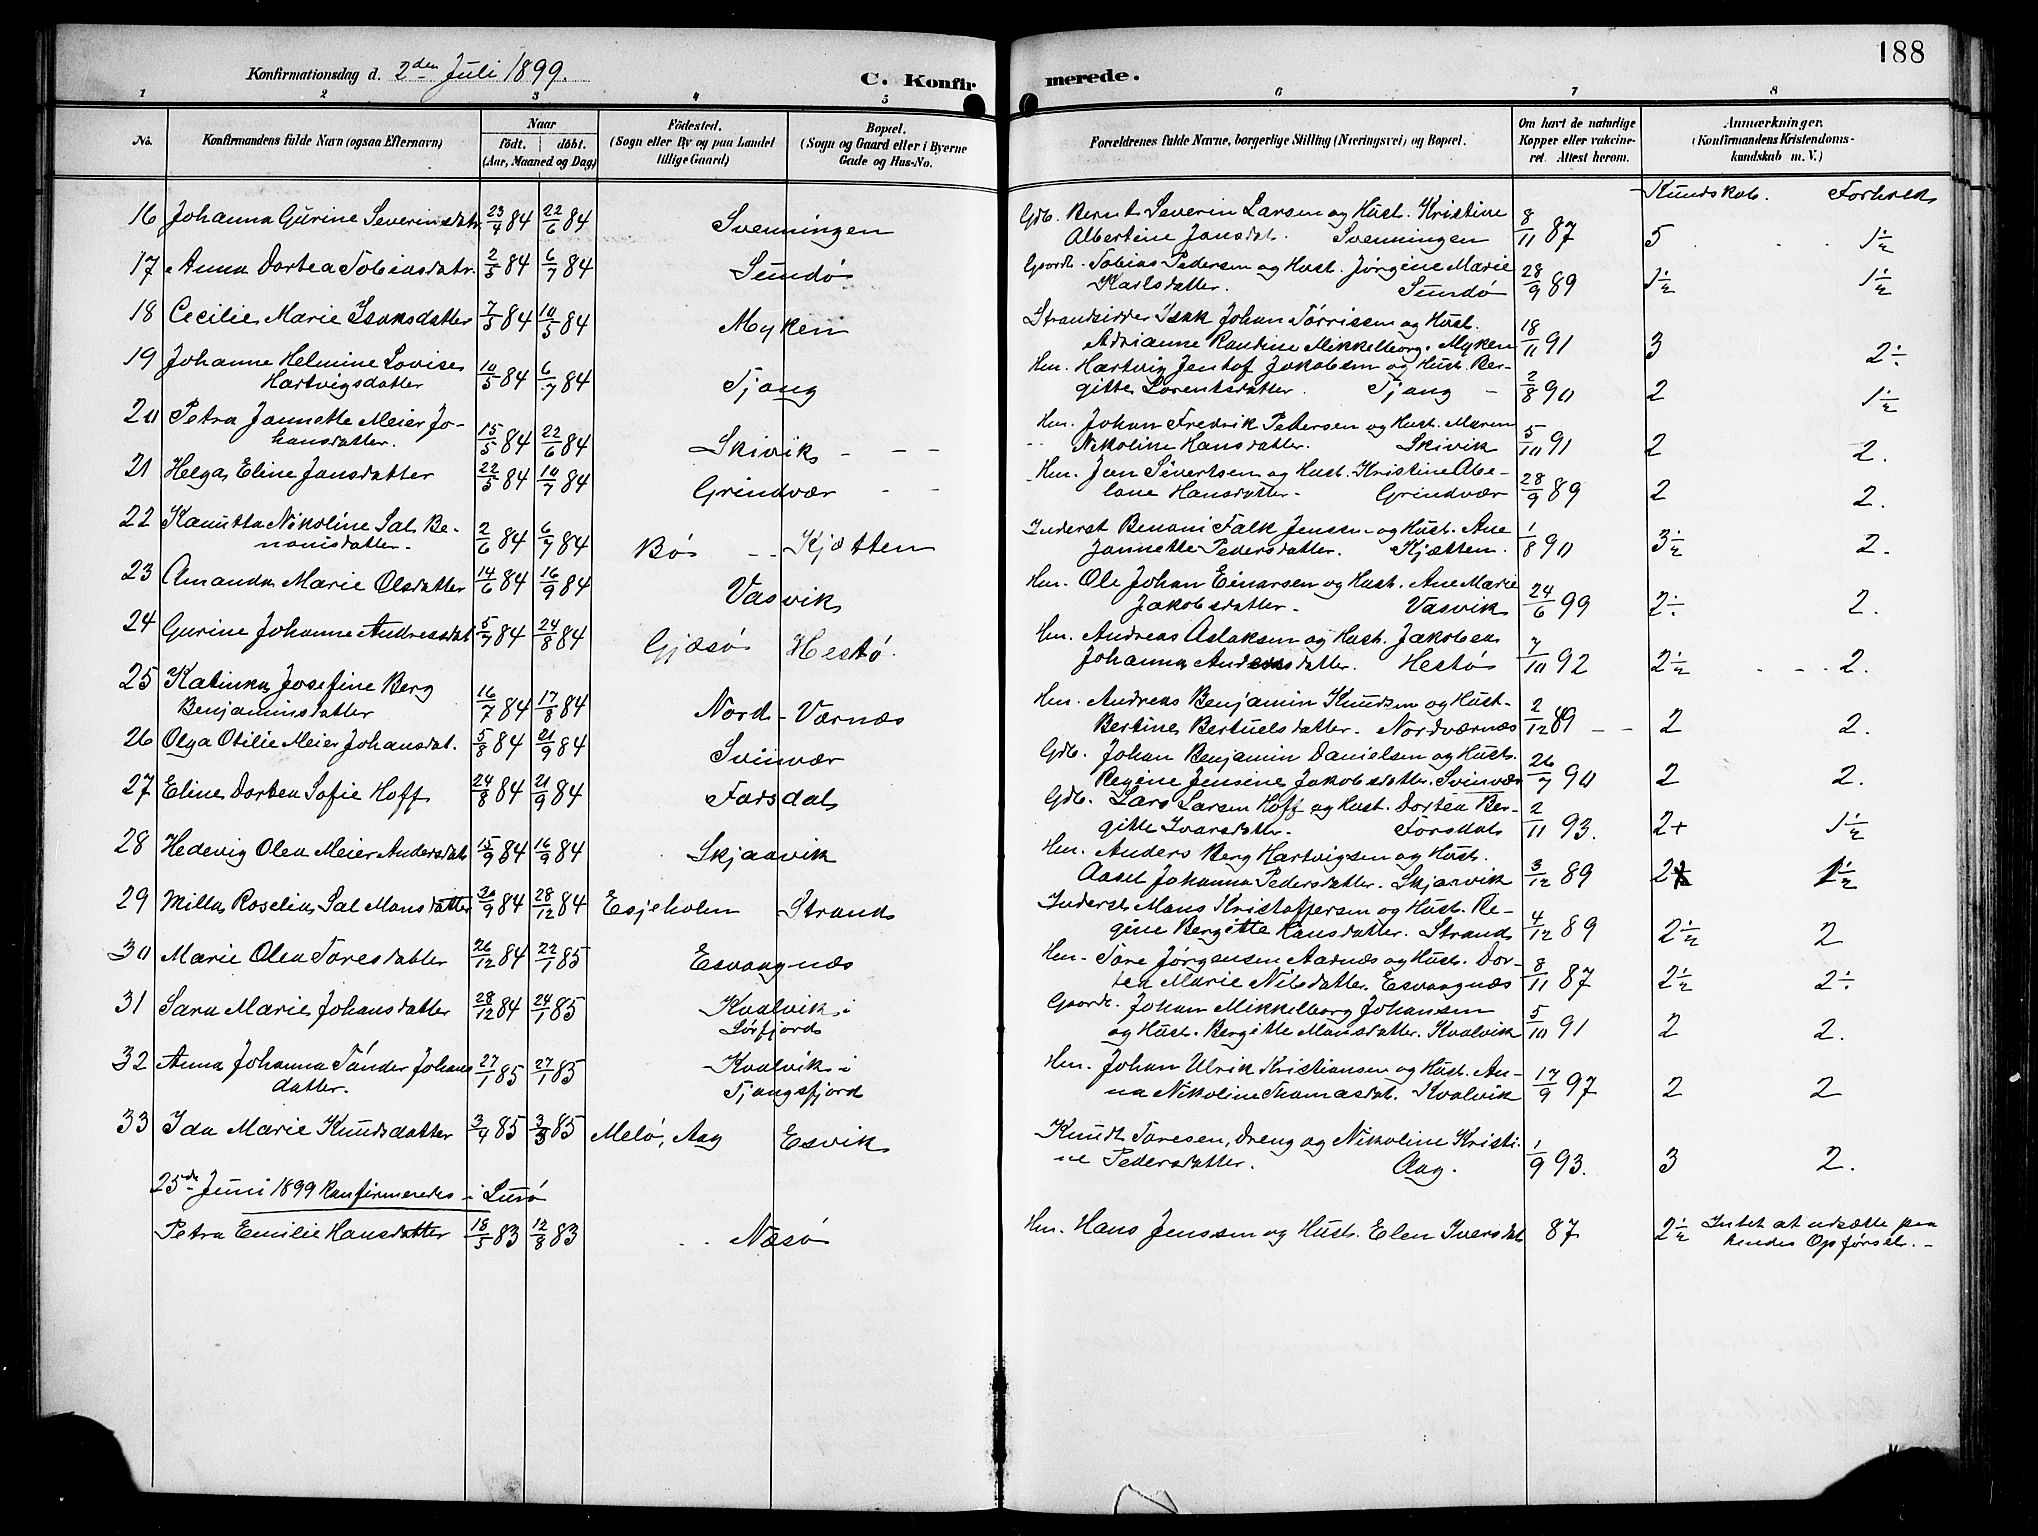 Konfirmationsdag d. 2den Juli 1899. C. Konfirmerede. 188
1 2 3 4 5 6 7 8
No. Konfirmandens fulde Navn (ogsaa Efternavn) Naar født. døbt. (Aar, Maaned og Dag) Fødested. (Sogn eller By og paa Landet tillige Gaard) Bopæl. (Sogn og Gaard eller i Byerne Gade og Hus-No. Forældrenes fulde Navne, borgerlige Stilling (Næringsvei) og Bopæl. Om havt de naturlige Kopper eller vakcineret. Attest herom. Anmærkninger. (Konfirmandens Kristendomskundskab m. V.)
Kundskab. Forhold
16 Johanna Gurine Severinsdatr. 23/4 84 22/6 84 Svenningen Gdb. Bernt Severin Larsen og Hust. Kristine
Albertine Jansdat. Svenningen 8/11 87 5 1½
17 Anna Dortea Tobiasdatr. 2/5 84 6/7 84 Sundø Gaardb. Tobias Pedersen og Hust. Jørgine Marie
Karlsdatter. Sundø 28/9 89 1½ 1½
18 Cecilie Marie Isaksdatter 7/5 84 10/5 84 Myken Strandsidder Isak Johan Tørrissen og Hust.
Adrianne Randine Mikkelborg. Myken 18/11 91 3 2÷
19 Johanne Helmine Lovise
Hartvigsdatter 10/5 84 6/7 84 Tjong Hm. Hartvig Jentof Jakobsen og Hust. Ber-
gitte Lorentsdatter. Tjong - 2/8 90 2 1½
20 Petra Jannette Meier Jo-
hansdatter. 15/5 84 22/6 84 Skivik - - - Hm. Johan Fredrik Petersen og Hust. Maren
Nikoline Hansdatter. Skivik 5/10 91 2 2.
21 Helga Eline Jansdatter 22/5 84 10/7 84 Grindvær - - Hm. Jan Sivertsen og Hust. Kristine Abe-
lone Hansdatter - Grindvær 28/9 89 2 2.
22 Kanutta Nikoline Sal. Be-
nonisdatter. 2/6 84 6/7 84 Bøs - - Kjætten Inderst Benoni Falk Jensen og Hust. Ane
Jannette Pedersdatter. Kjætten. 1/8 90 3½ 2.
23 Amanda Marie Olsdatter 14/6 84 16/9 84 Vasvik Hm. Ole Johan Einarsen og Hust. Ane Marie
Jakobsdatter - Vasvik 24/6 99 2÷ 2.
24 Gurine Johanne Andreasdat. 5/7 84 24/8 84 Gjæsø Hestø. Hm. Andreas Aslaksen og Hust. Jakobea
Johanna Andersdatter. Hestø 7/10 92 2½ 2.
25 Katinka Josefine Berg
Benjaminsdatter 16/7 84 17/8 84 Nord - Værnæs Hm. Andreas Benjamin Knudsen og Hust-
Bertine Bertuelsdatter. Nordværnæs 2/12 89 - - 2 2.
26 Olga Otilie Meier Johansdat. 5/8 84 21/9 84 Svinvær Gdb. Johan Benjamin Danielsen og Hust.
Regine Jensine Jakobsdatter. Svinvær 26/7 90 2 2.
27 Eline Dortea Sofie Hoff 24/8 84 21/9 84 Forsdal Gdb. Lars Larsen Hoff og Hust. Dortea Ber-
gitte Ivarsdatter. Forsdal 2/11 93. 2+ 1½
28 Hedevig Olea Meier Andersdat. 15/9 84 16/9 84 Skjaavik Hm. Anders Berg Hartvigsen og Hust.
Aasel Johanna Pedersdatter. Skjaavik 3/12 89 2 1½
29 Milla Roselia Sal Monsdatter 26/9 84 28/12 84 Esjeholm Strand Inderst Mons Kristoffersen og Hust. Re-
gine Bergitte Hansdatter. Strand 4/12 89 2½ 2
30 Marie Olea Toresdatter 26/12 84 22/1 85 Esvaagnæs Hm. Tore Jørgensen Aarnæs og Hust. Dor-
tea Marie Nilsdatter. Esvaagnæs 8/11 87 2½ 2÷
31 Sara Marie Johansdatter 28/12 84 24/1 85 Kvalvik i
Sørfjord Gaardb. Johan Mikkelborg Johansen
og Hust. Bergitte Monsdatter. Kvalvik 5/10 91 2 2.
32 Anna Johanna Tønder Johans
datter. 27/1 85 27/1 85 Kvalvik i
Tjongsfjord Hm. Johan Ulrik Kristiansen og Hust. An-
na Nikoline Thomasdat. Kvalvik 17/9 97 2 2
33 Ida Marie Knudsdatter 3/4 85 3/3 85 Melø, Aag Esvik Knudt Toresen, Dreng og Nikoline Kristi-
ne Pedersdatter. Aag. 1/9 93. 3 2.
25de Juni 1899 konfirmeredes i Lurø
Petra Emilie Hansdatter 18/5 83 12/8 83 Næsø Hm. Hans Jenssen og Hust. Elen Iversdat 87 2½ Intet at udsætte paa
hendes Opførsel. -